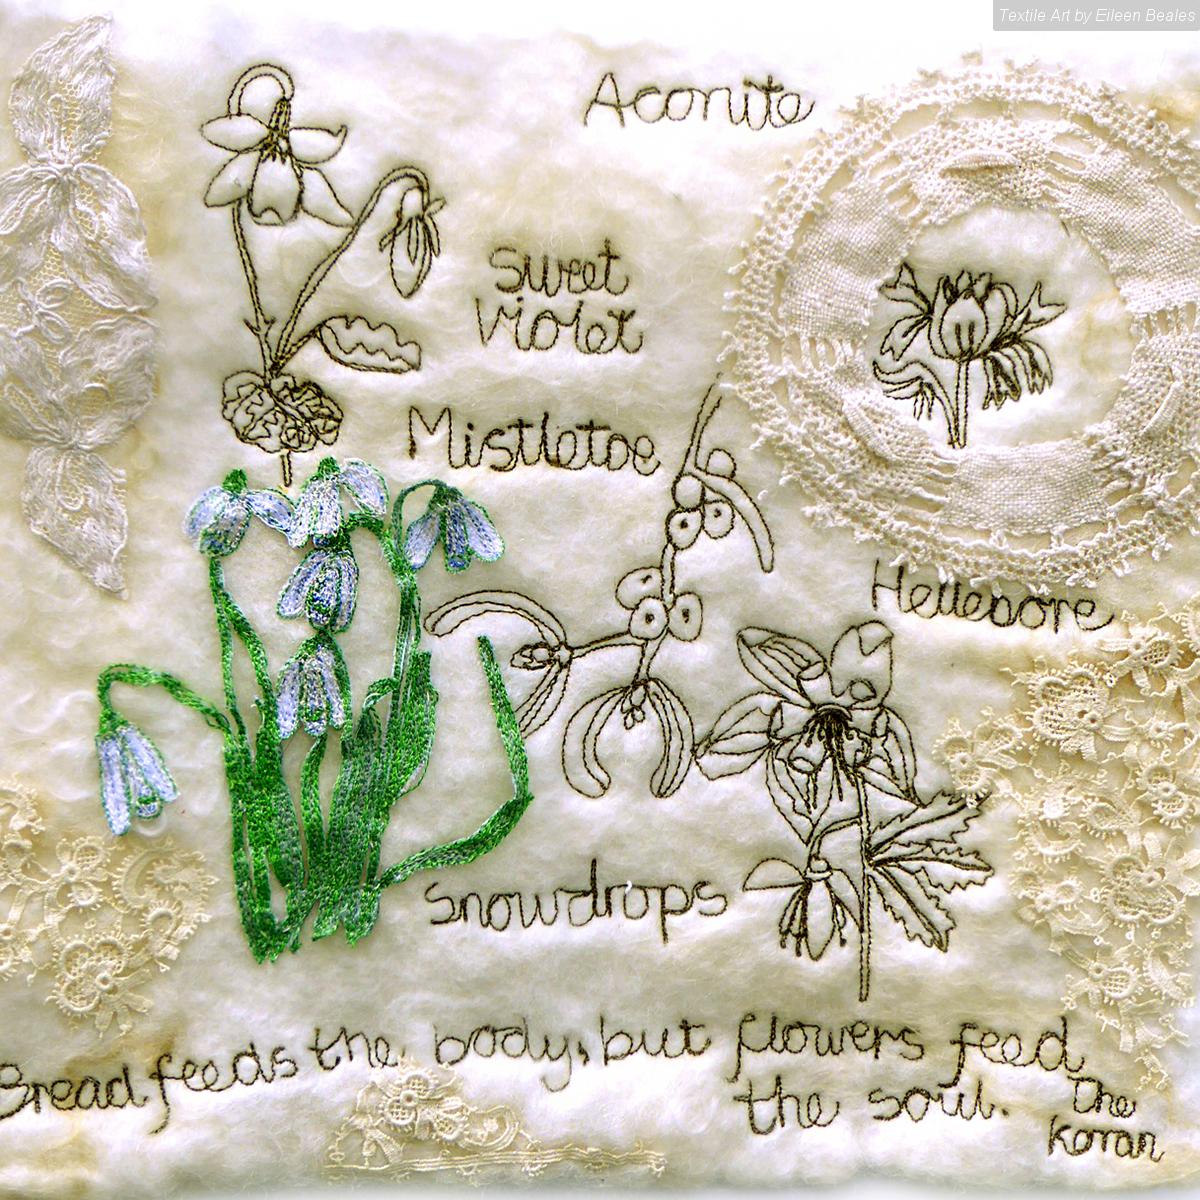 Textile Art by Eileen Beales
Aconite
Sweet
Violet
Mistletoe
Hellebore
Snowdrops
Bread feeds the body, but flowers feed
the soul.
The
Koran